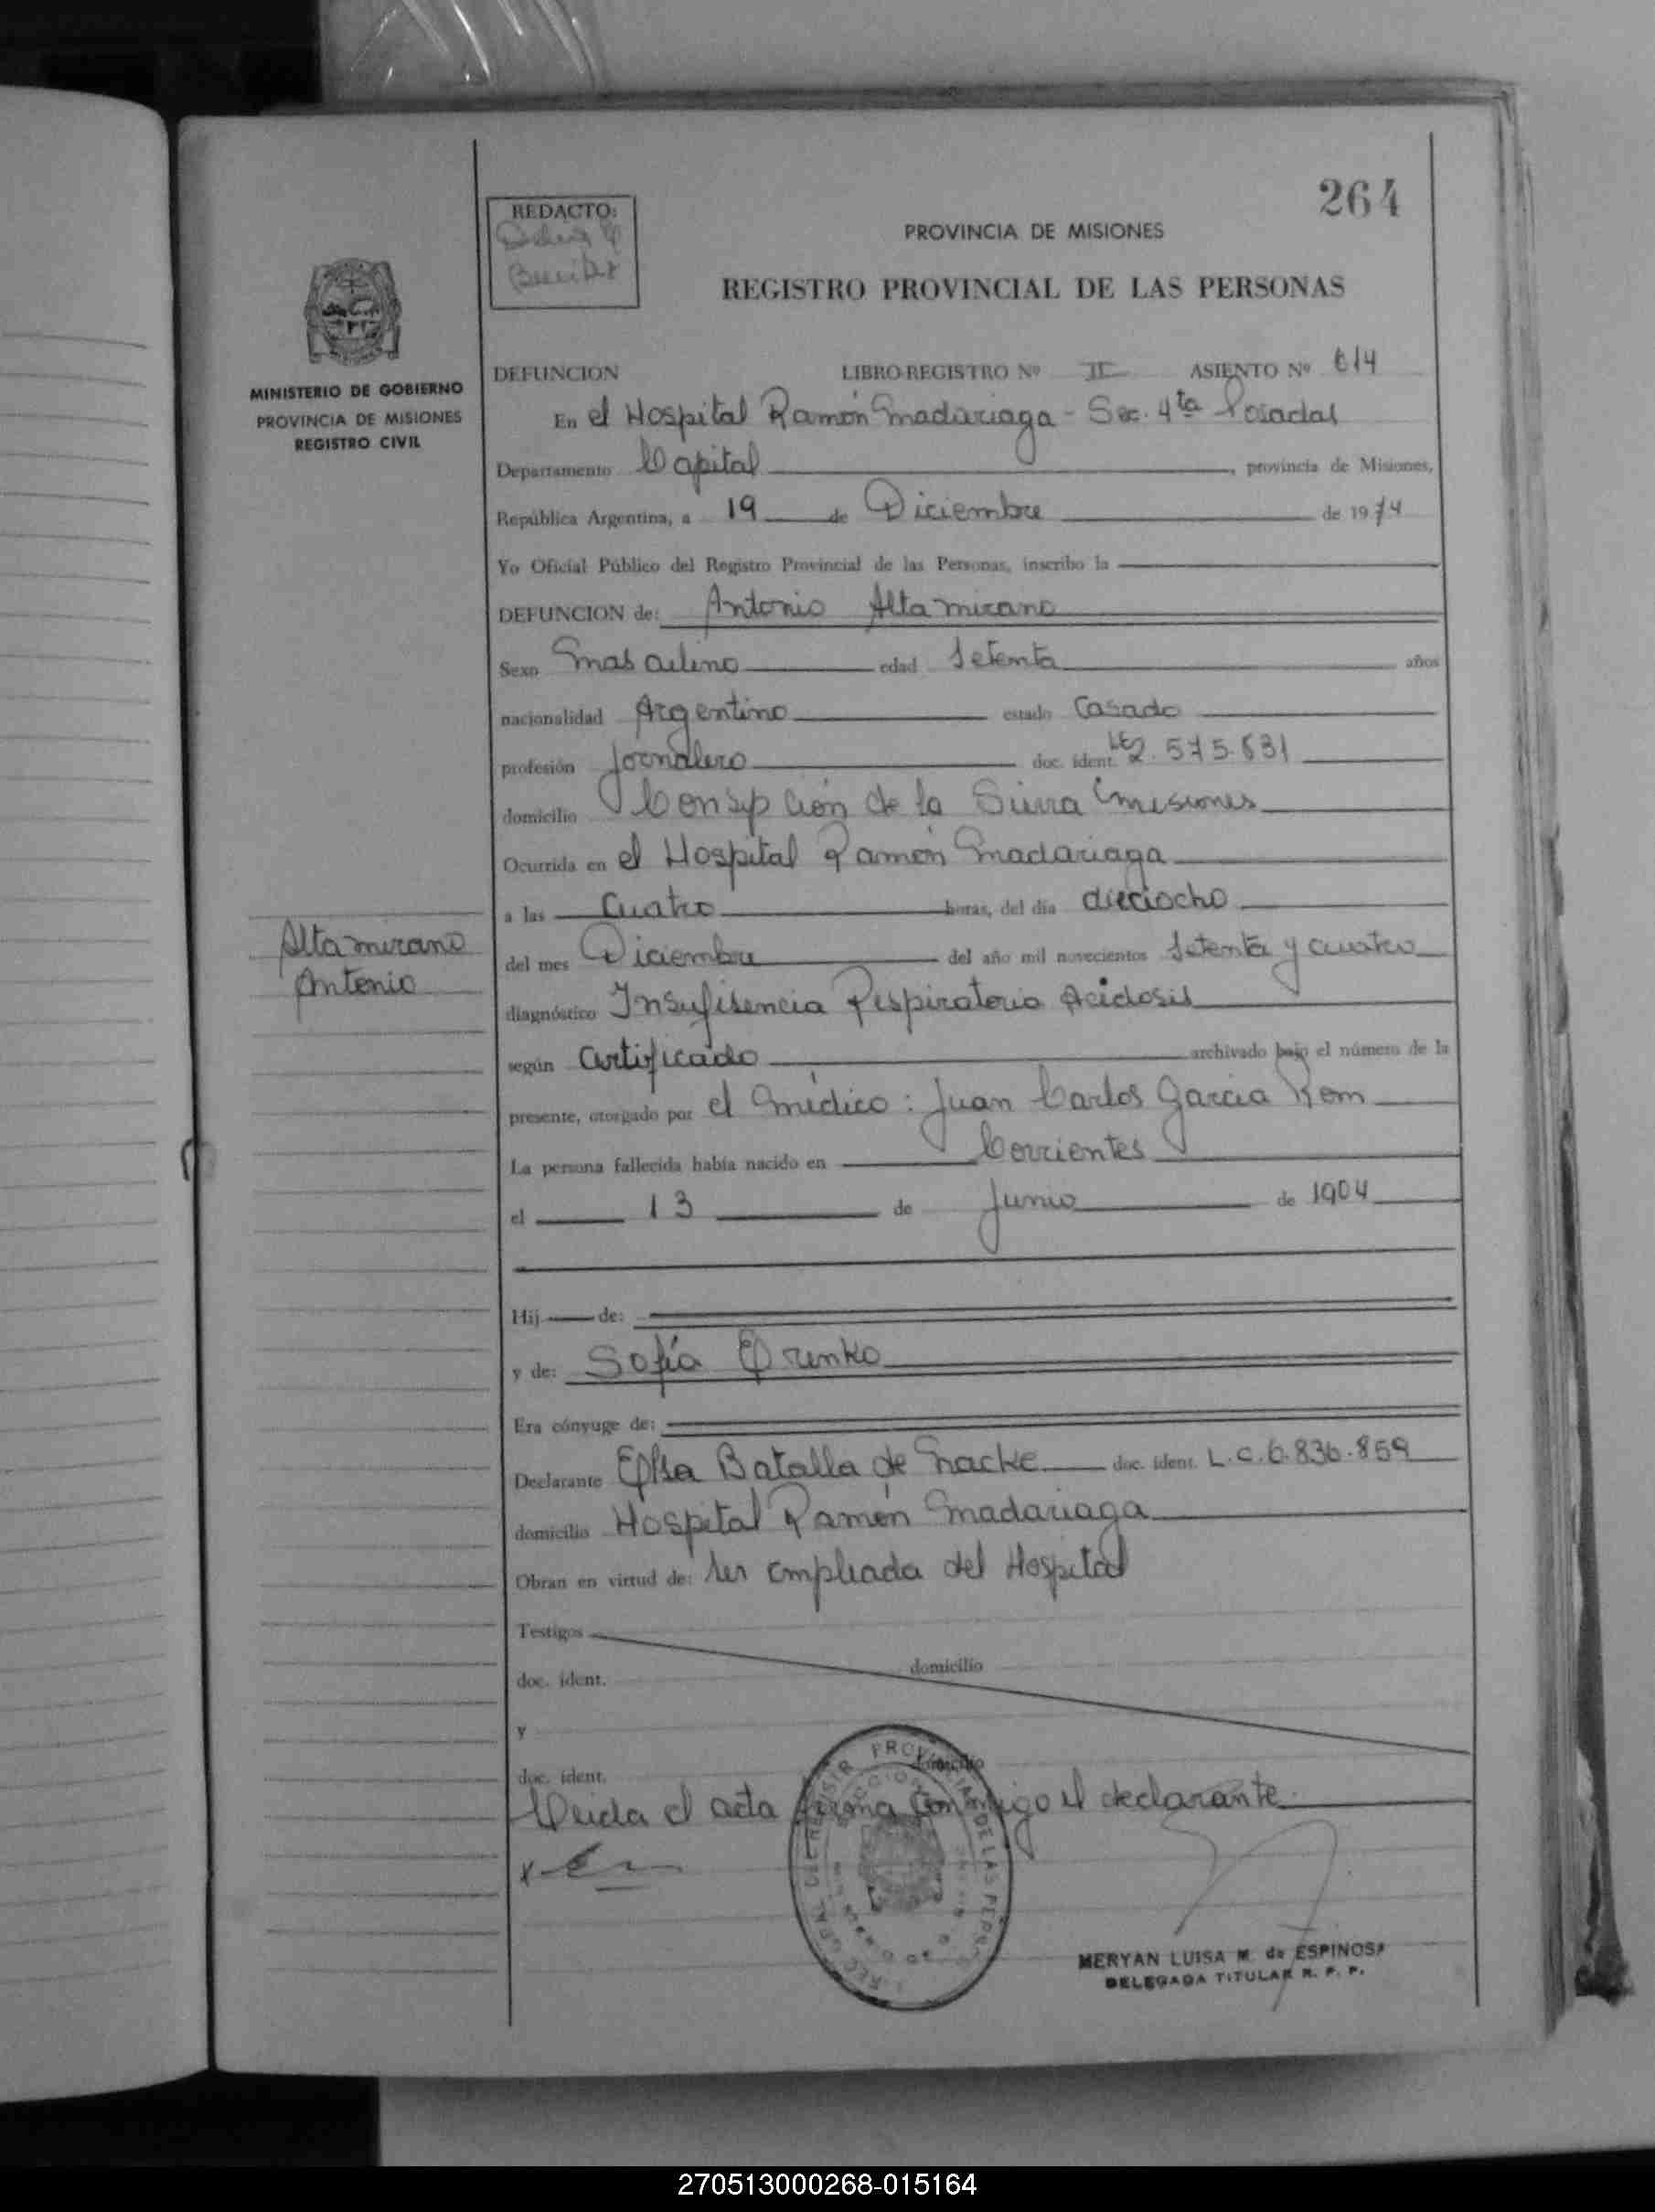 264
REDACTO:
PROVINCIA DE MISIONES
REGISTRO PROVINCIAL DE LAS PERSONAS
MINISTERIO DE GOBIERNO
PROVINCIA DE MISIONES
REGISTRO CIVIL
DEFUNCION LIBRO-REGISTRO Nº II ASIENTO Nº 614
En el Hospital Ramón Madariaga - Sec. 4ta Posadas
Departamento Capital, provincia de Misiones,
República Argentina, a 19 de Diciembre de 1974
Yo Oficial Público del Registro Provincial de las Personas, inscribo la
DEFUNCION de: Antonio Altamirano
Sexo Masculino edad Setenta años
nacionalidad Argentino estado Casado
profesión Jornalero doc. ident. LE 2.575.631
domicilio Consepción de la Sierra Misiones
Ocurrida en el Hospital Ramón Madariaga
a las Cuatro horas, del día dieciocho
Altamirano
Antonio
del mes Diciembre del año mil novecientos Setenta y cuatro
diagnóstico Insufisencia Respiratoria Acidosis
según Certificado archivado bajo el número de la
presente, otorgado por el Médico: Juan Carlos Garcia Rom
La persona fallecida había nacido en Corrientes
el 13 de Junio de 1904
Hij de:
y de: Sofía
Era cónyuge de:
Declarante Elsa Batalla de doc. ident. L.C. 6.836.859
domicilio Hospital Ramón Madariaga
Obran en virtud de: ser empleada del Hospital
Testigos
doc. ident. domicilio
y
doc. ident. domicilio
Leida el acta firma conmigo el declarante.
MERYAN LUISA M. de ESPINOSA
DELEGADA TITULAR R. P. P.
270513000268-015164